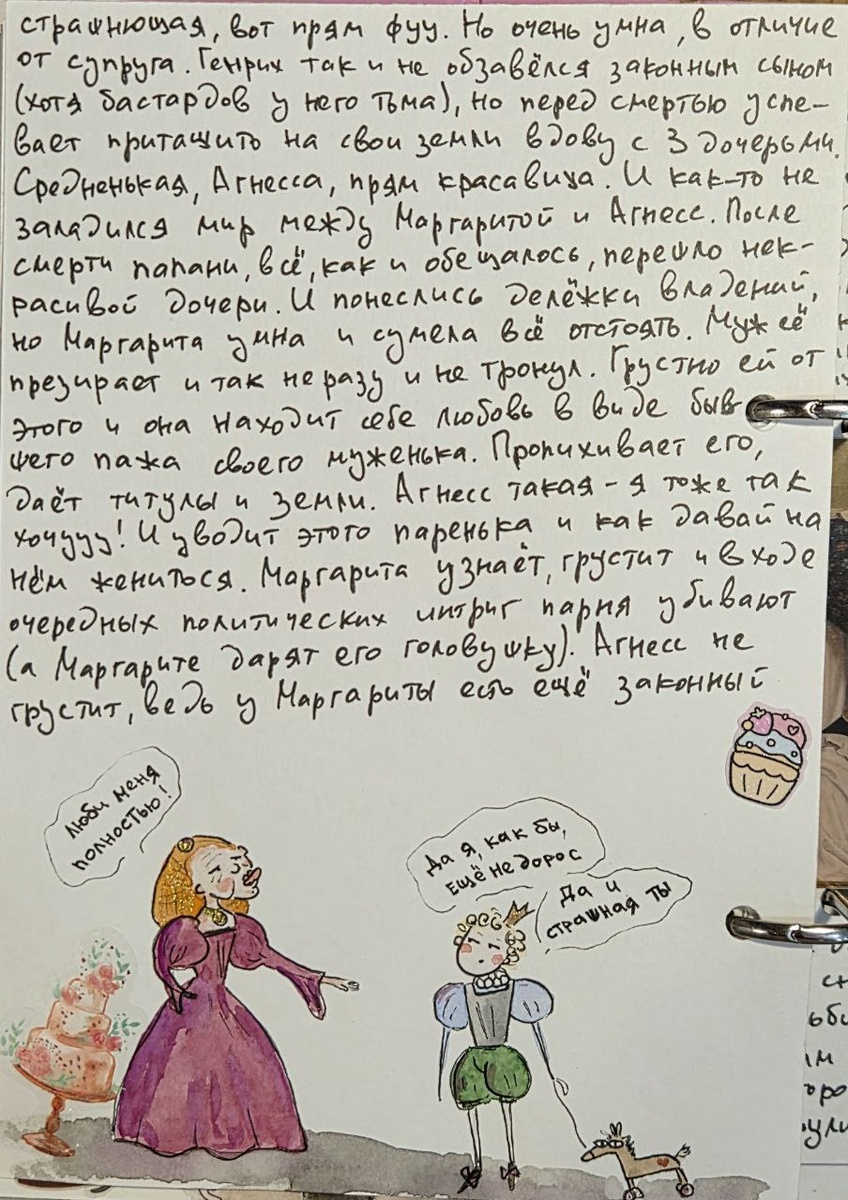 страшнющая, вот прям фуу. Но очень умна, в отличие
от супруга. Генрих так и не обзавёлся законным сыном
(хотя бастардов у него тьма), но перед смертью успе-
вает притащить на свои земли вдову с 3 дочерьми.
Средненькая, Агнесса, прям красавица. И как-то не
заладился мир между Маргаритой и Агнесс. После
смерти папани, всё, как и обещалось, перешло нек-
расивой дочери. И понеслись делёжки владений,
но Маргарита умна и сумела всё отстоять. Муж её
презирает и так не разу и не тронул. Грустно ей от
этого и она находит себе любовь в виде быв-
шего пажа своего муженька. Пропихивает его,
даёт титулы и земли. Агнесс такая - я тоже так
хочууу! И уводит этого паренька и как давай на
нём жениться. Маргарита узнаёт, грустит и в ходе
очередных политических интриг парня убивают
(а Маргарите дарят его головушку). Агнесс не
грустит, ведь у Маргариты есть ещё законный
Люби меня
полностью!
Да я, как бы,
ещё не дорос
Да и
страшная ты